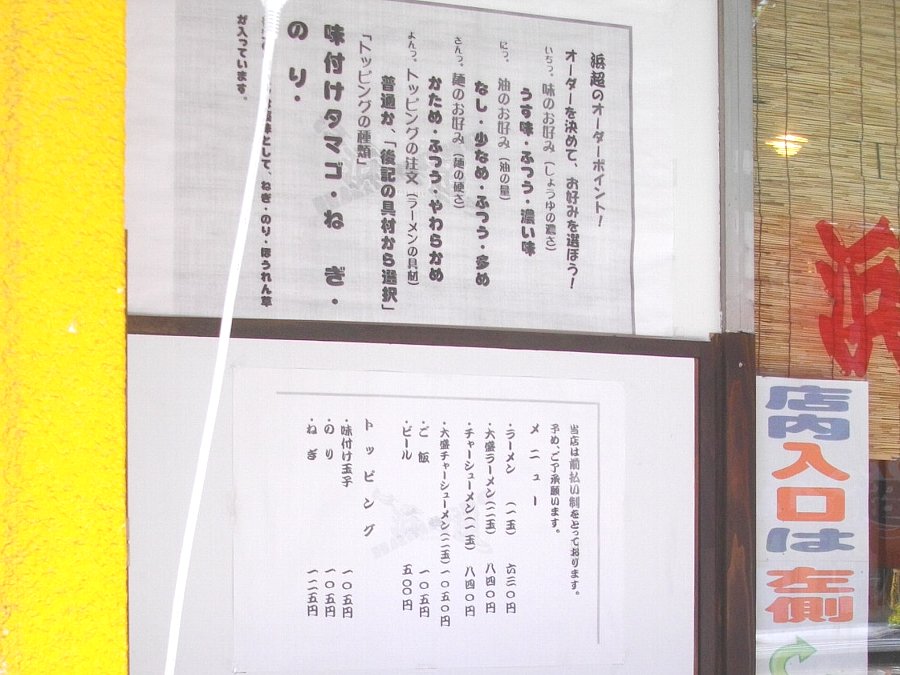 浜超のオーダーポイント!
オーダーを決めて、お好みを選ぼう!
いちっ、味のお好み(しょうゆの濃さ)
うす味・ふつう・濃い味
にっ、油のお好み(油の量)
なし・少なめ・ふつう・多め
さんっ、麺のお好み(麺の硬さ)
かため・ふつう・やわらかめ
よんっ、トッピングの注文(ラーメンの具材)
普通か、「後記の具材から選択」
「トッピングの種類」
味付けタマゴ・ねぎ・
のり・
として、ねぎ・のり・ほうれん草
が入っています。
当店は前払い制をとっております。
予め、ご了承願います。
メニュー
・ラーメン(一玉) 六三〇円
・大盛ラーメン(二玉) 八四〇円
・チャーシューメン(一玉) 八四〇円
・大盛チャーシューメン(二玉) 一〇五〇円
・ご飯 一〇五円
・ビール 五〇〇円
トッピング
・味付け玉子 一〇五円
・のり 一〇五円
・ねぎ 一二五円
浜
店内
入口
は
左側